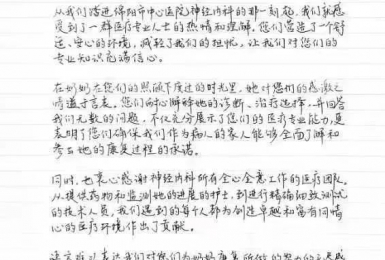 从我们踏进绵阳市中心医院神经内科的那一刻起，我们就感
受到了一群医疗专业人士的热情和理解。您们营造了一个舒
适、安心的环境，减轻了我们的担忧，让我们对您们的
专业知识充满信心。
在奶奶在您们的照顾下度过的时光里，她对您们的感激之
情溢于言表。您们耐心解释她的诊断、治疗选择，并回答
我们无数的问题，不仅充分展示了您们的医疗专业能力，更
表明了您们确保我们作为病人的家人能够全面了解和
参与她的康复过程的承诺。
同时，也衷心感谢神经内科所有全心全意工作的医疗团队。
从提供药物和监测她的进展的护士，到进行精确细致测试
的技术人员，我们遇到的每个人都为创造卓越和富有同情
心的医疗环境作出了贡献。
达我们对您们为奶奶康复所做的努力的